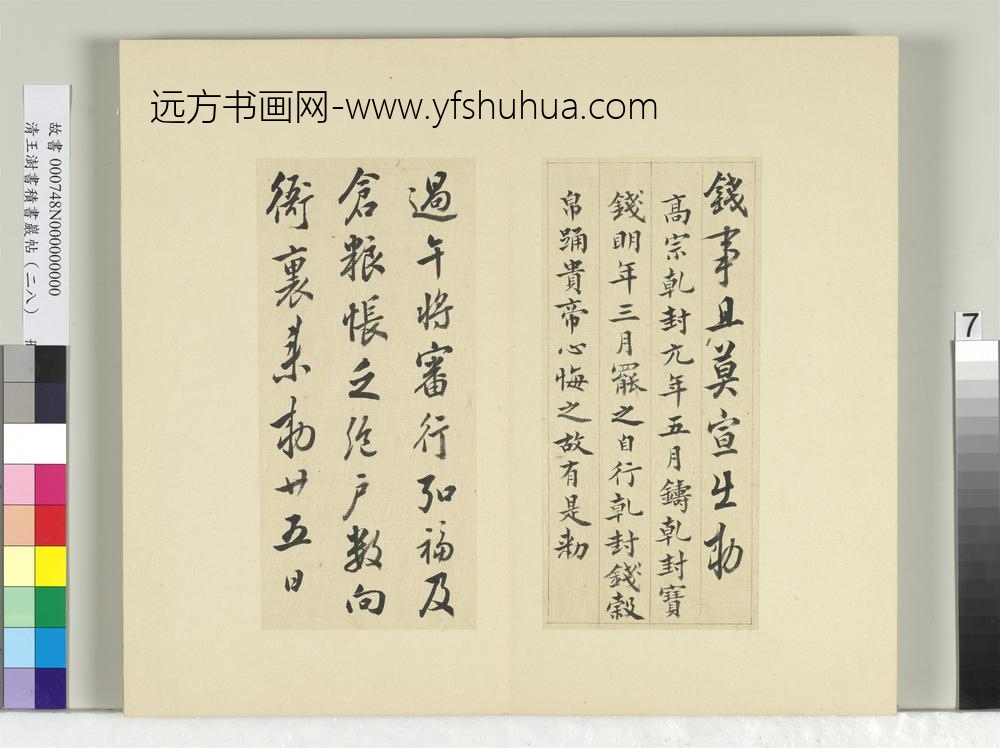 远方书画网-www.yfshuhua.com
錢事且莫宣出勅
高宗乹封元年五月鑄乹封寶
錢明年三月罷之自行乹封錢穀
帛踊貴帝心悔之故有是勅
過午将審行弘福及
倉粮帳之後户數向
衙裏来勅廿五日
故書 000748N000000000
清王澍書積書巖帖(二八)
7